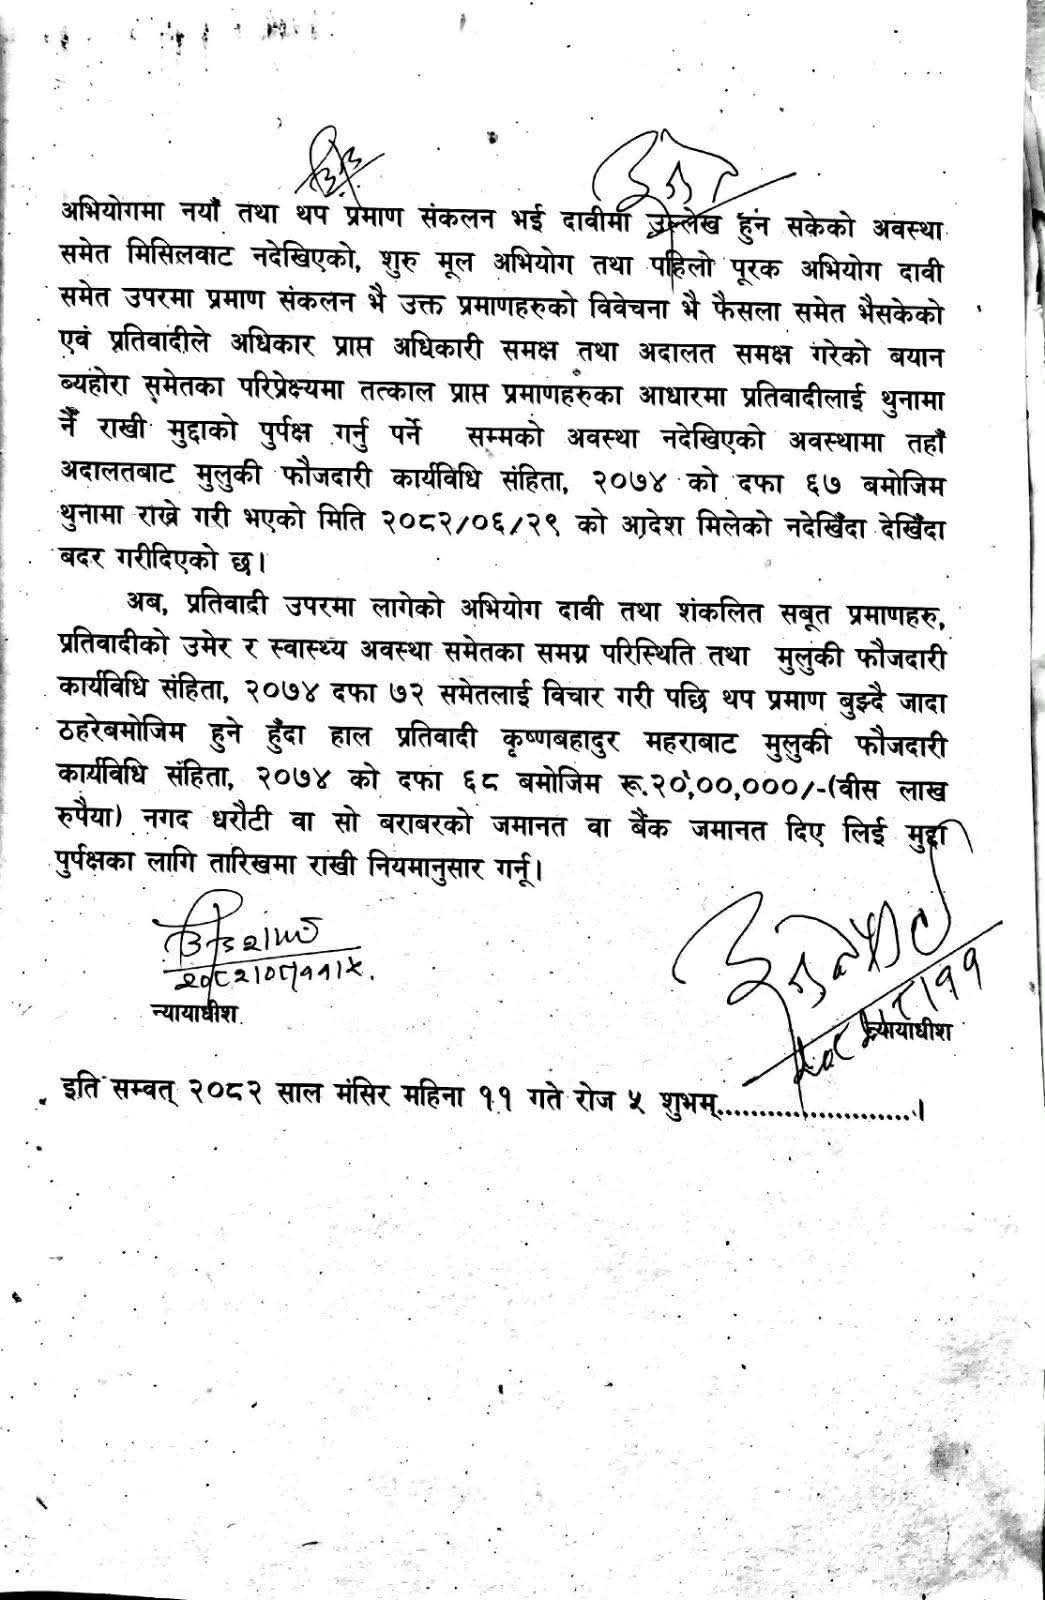 अभियोगमा नयाँ तथा थप प्रमाण संकलन भई दावीमा उल्लेख हुन सकेको अवस्था
समेत मिसिलवाट नदेखिएको, शुरु मूल अभियोग तथा पहिलो पूरक अभियोग दावी
समेत उपरमा प्रमाण संकलन भै उक्त प्रमाणहरुको विवेचना भै फैसला समेत भैसकेको
एवं प्रतिवादीले अधिकार प्राप्त अधिकारी समक्ष तथा अदालत समक्ष गरेको बयान
ब्यहोरा समेतका परिप्रेक्ष्यमा तत्काल प्राप्त प्रमाणहरुका आधारमा प्रतिवादीलाई थुनामा
नैँ राखी मुद्दाको पुर्पक्ष गर्नु पर्ने सम्मको अवस्था नदेखिएको अवस्थामा तहाँ
अदालतबाट मुलुकी फौजदारी कार्यविधि संहिता, २०७४ को दफा ६७ बमोजिम
थुनामा राख्ने गरी भएको मिति २०८२/०६/२९ को आदेश मिलेको नदेखिँदा देखिँदा
बदर गरीदिएको छ।
अब, प्रतिवादी उपरमा लागेको अभियोग दावी तथा शंकलित सबूत प्रमाणहरु,
प्रतिवादीको उमेर र स्वास्थ्य अवस्था समेतका समग्र परिस्थिति तथा मुलुकी फौजदारी
कार्यविधि संहिता, २०७४ दफा ७२ समेतलाई विचार गरी पछि थप प्रमाण बुझ्दै जादा
ठहरेबमोजिम हुने हुँदा हाल प्रतिवादी कृष्णबहादुर महराबाट मुलुकी फौजदारी
कार्यविधि संहिता, २०७४ को दफा ६८ बमोजिम रू.२०,००,०००/-(वीस लाख
रुपैया) नगद धरौटी वा सो बराबरको जमानत वा बैंक जमानत दिए लिई मुद्दा
पुर्पक्षका लागि तारिखमा राखी नियमानुसार गर्नू।
२०८२/०८/११/५.
न्यायाधीश
न्यायाधीश
इति सम्वत् २०८२ साल मंसिर महिना ११ गते रोज ५ शुभम्........................।